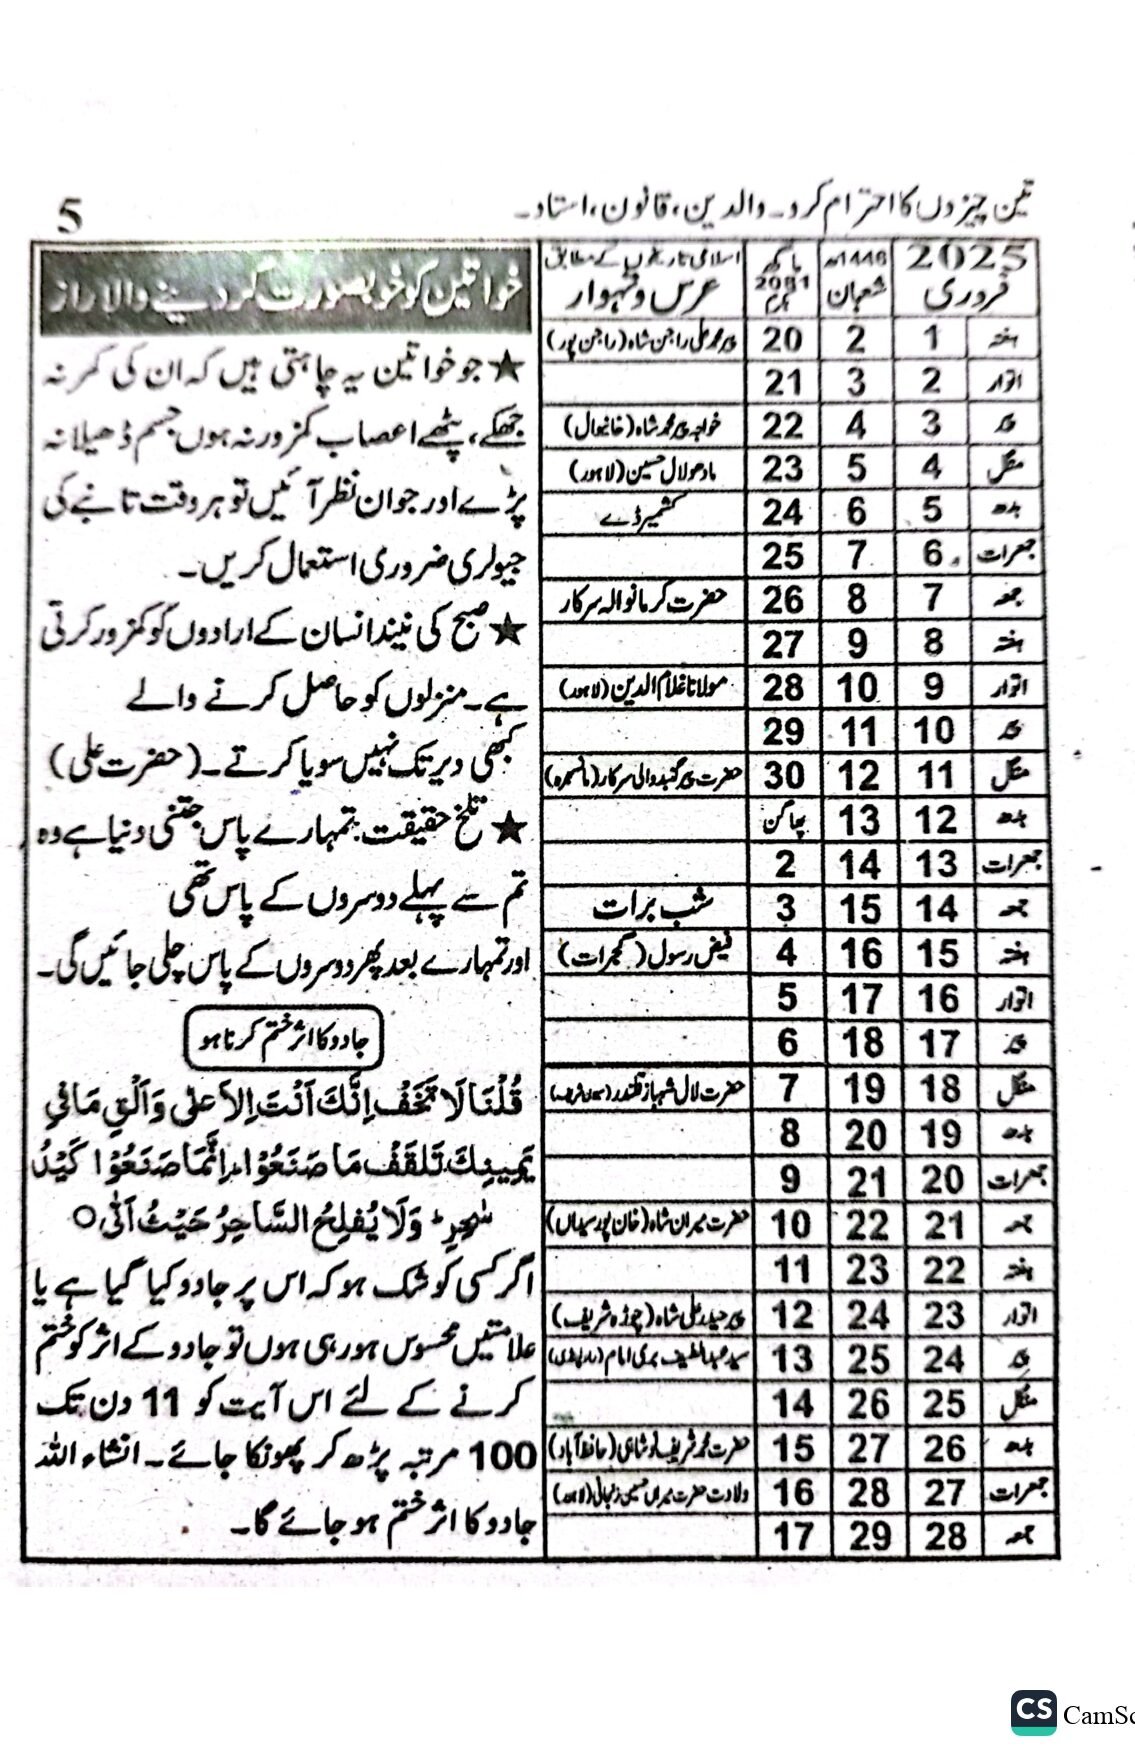 تین چیزوں کا احترام کرو۔ والدین، قانون، استاد۔
5
2025 فروری 1446ھ شعبان ماگھ 2081 بکرم اسلامی تاریخوں کے مطابق عرس و تہوار
ہفتہ 1 2 20 پیر محمد علی راجن شاہ (راجن پور)
اتوار 2 3 21
پیر 3 4 22 خواجہ پیر محمد شاہ (خانیوال)
منگل 4 5 23 مادھولال حسین (لاہور)
بدھ 5 6 24 کشمیر ڈے
جمعرات 6 7 25
جمعہ 7 8 26 حضرت کرمانوالہ سرکار
ہفتہ 8 9 27
اتوار 9 10 28 مولانا غلام الدین (لاہور)
پیر 10 11 29
منگل 11 12 30 حضرت پیر گنبد والی سرکار (مانسہرہ)
بدھ 12 13 پھاگن
جمعرات 13 14 2
جمعہ 14 15 3 شب برات
ہفتہ 15 16 4 فیض رسول (گجرات)
اتوار 16 17 5
پیر 17 18 6
منگل 18 19 7 حضرت لال شہباز قلندر (سہون شریف)
بدھ 19 20 8
جمعرات 20 21 9
جمعہ 21 22 10 حضرت میران شاہ (خان پور سیداں)
ہفتہ 22 23 11
اتوار 23 24 12 پیر حیدر علی شاہ (چورہ شریف)
پیر 24 25 13 سید عبداللطیف بری امام (راولپنڈی)
منگل 25 26 14
بدھ 26 27 15 حضرت محمد شریف نوشاہی (حافظ آباد)
جمعرات 27 28 16 ولادت حضرت میراں حسین زنجانی (لاہور)
جمعہ 28 29 17
خواتین کو خوبصورت کر دینے والا راز
★ جو خواتین یہ چاہتی ہیں کہ ان کی کمر نہ
جھکے، پٹھے اعصاب کمزور نہ ہوں جسم ڈھیلا نہ
پڑے اور جوان نظر آئیں تو ہر وقت تانبے کی
جیولری ضروری استعمال کریں۔
★ صبح کی نیند انسان کے ارادوں کو کمزور کرتی
ہے۔ منزلوں کو حاصل کرنے والے
کبھی دیر تک نہیں سویا کرتے۔ (حضرت علی)
★ تلخ حقیقت: تمہارے پاس جتنی دنیا ہے وہ
تم سے پہلے دوسروں کے پاس تھی
اور تمہارے بعد پھر دوسروں کے پاس چلی جائیں گی۔
جادو کا اثر ختم کرنا ہو
قُلْنَا لَا تَخَفْ اِنَّكَ اَنْتَ الْاَعْلٰی وَاَلْقِ مَا فِیْ
یَمِیْنِكَ تَلْقَفْ مَا صَنَعُوْا ؕ اِنَّمَا صَنَعُوْا كَیْدُ
سٰحِرٍ ؕ وَلَا یُفْلِحُ السَّاحِرُ حَیْثُ اَتٰی ○
اگر کسی کو شک ہو کہ اس پر جادو کیا گیا ہے یا
علامتیں محسوس ہو رہی ہوں تو جادو کے اثر کو ختم
کرنے کے لئے اس آیت کو 11 دن تک
100 مرتبہ پڑھ کر پھونکا جائے۔ انشاء اللہ
جادو کا اثر ختم ہو جائے گا۔
CS CamSc